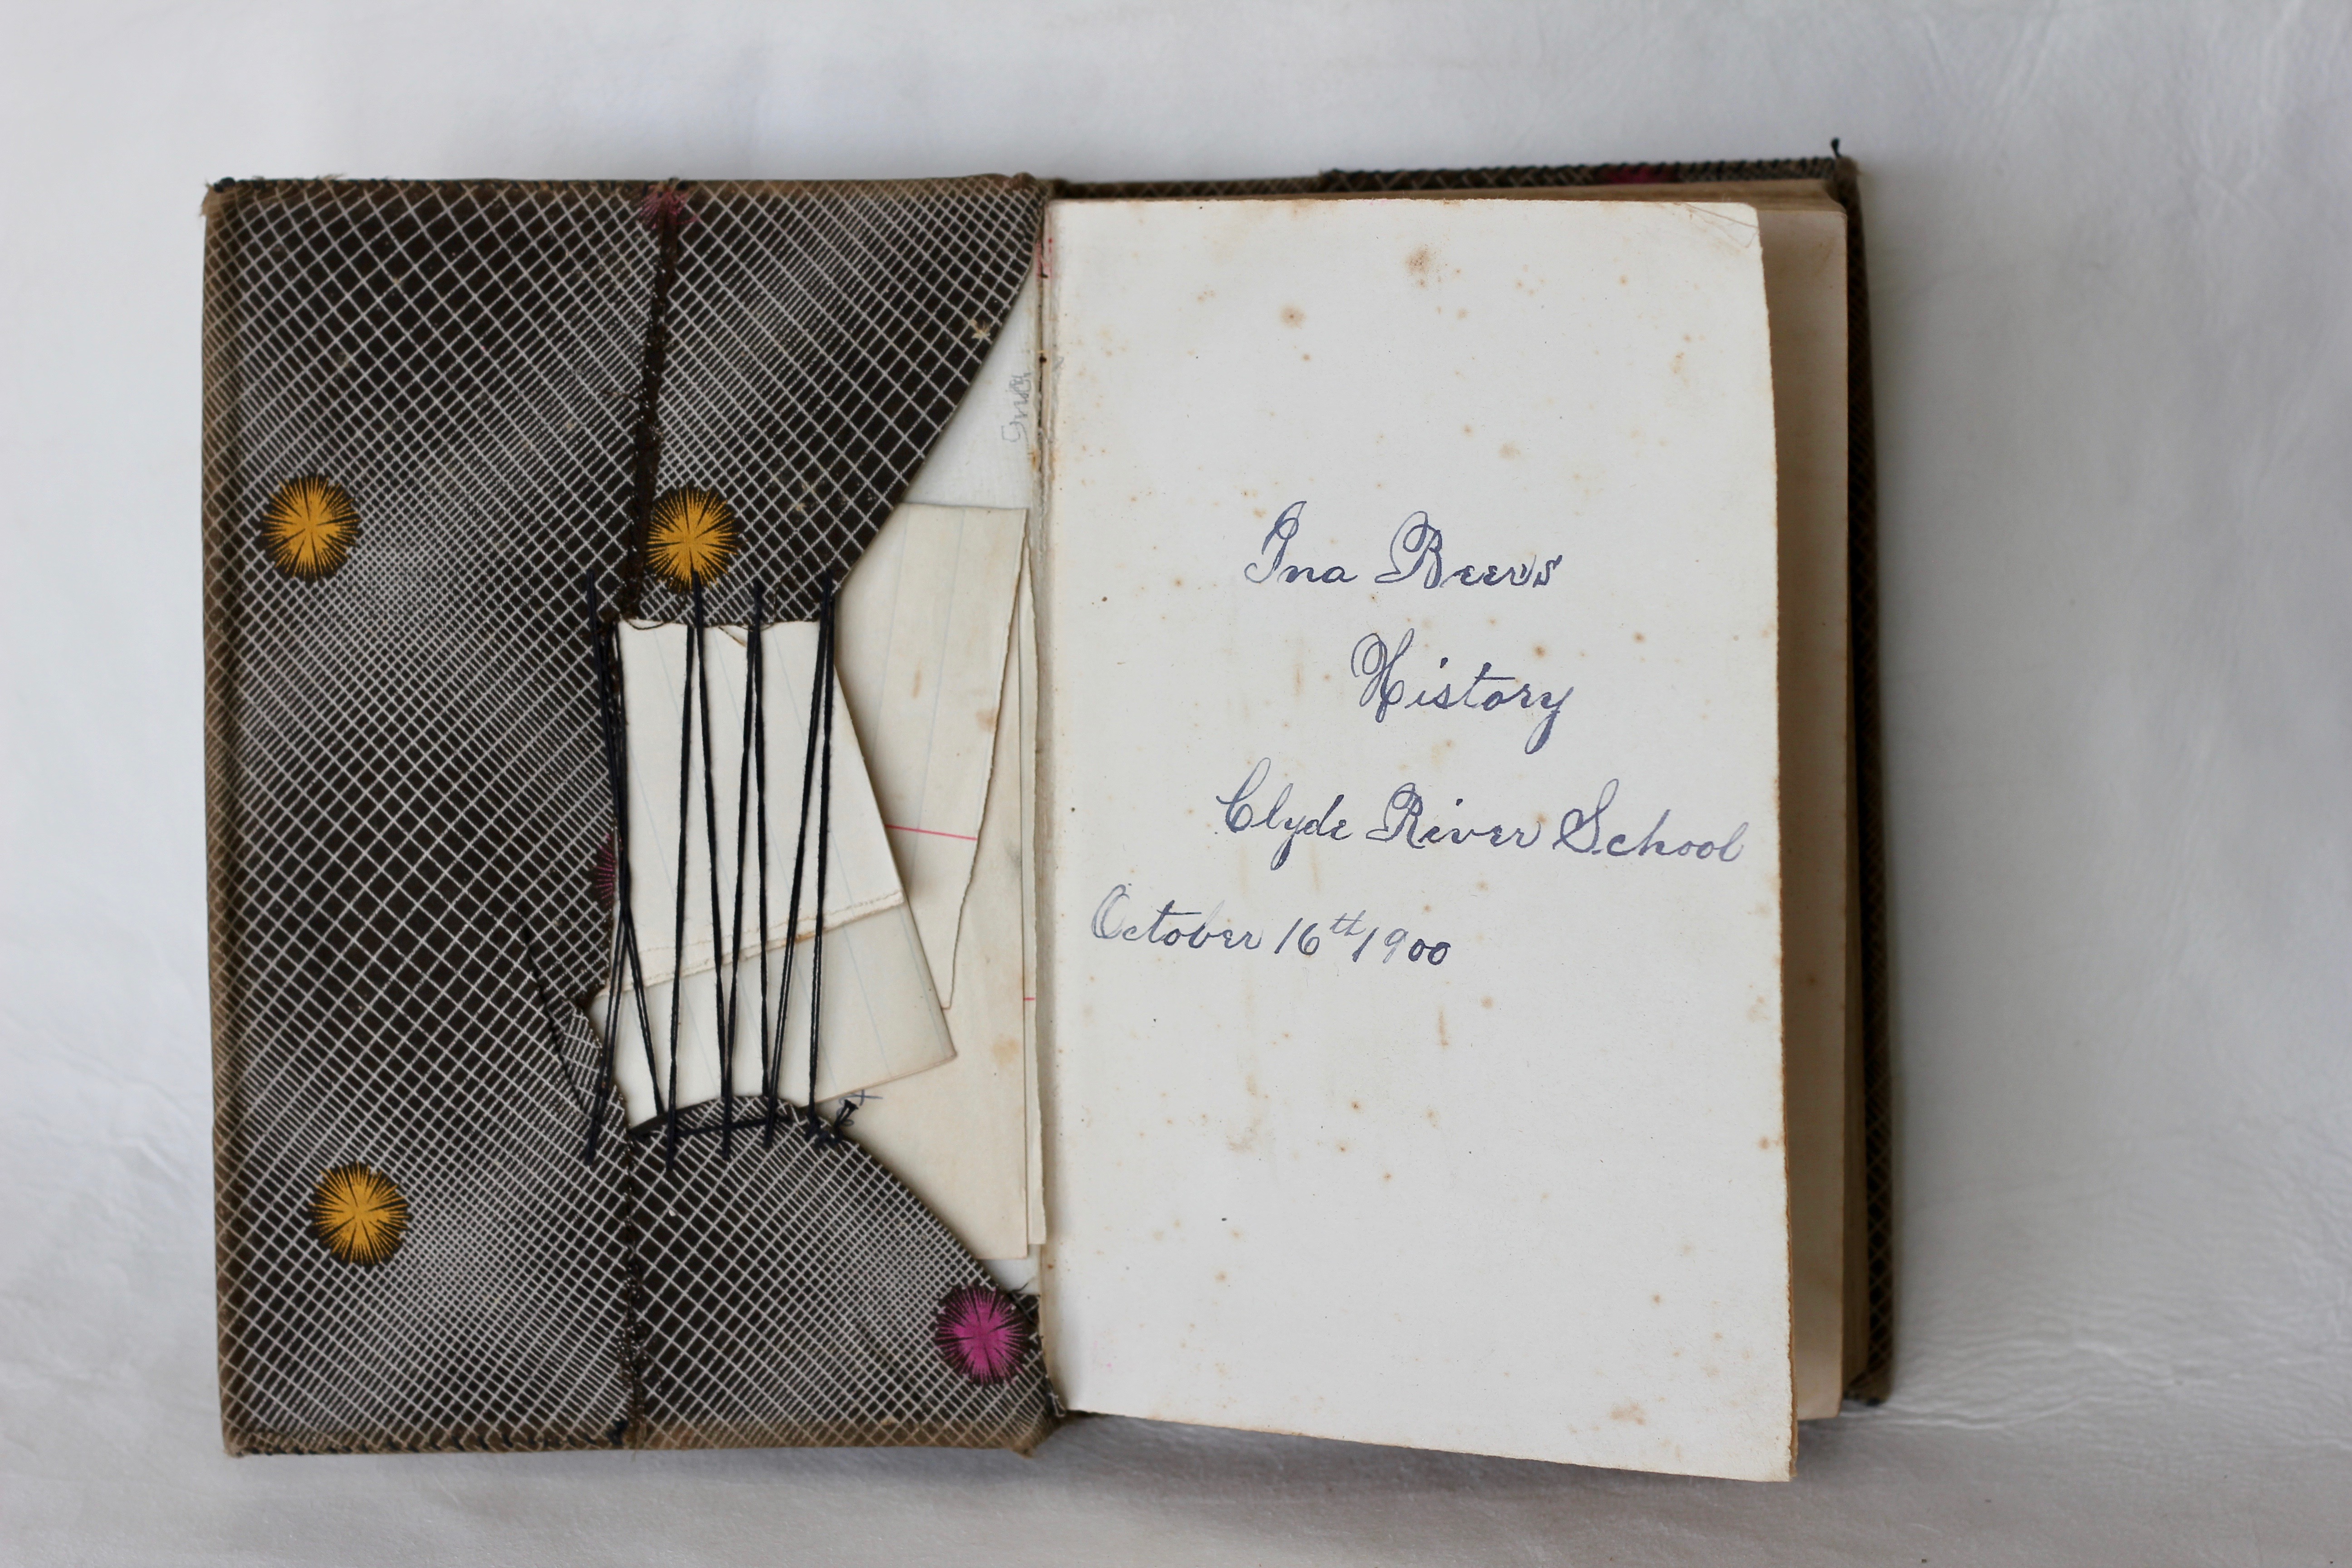 Ina
Ina Beers
History
Clyde River School
October 16th 1900